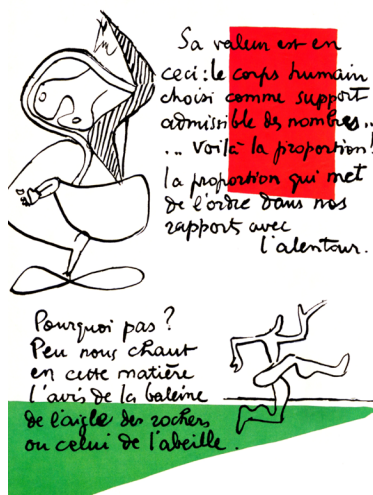 Sa valeur est en
ceci : le corps humain
choisi comme support
admissible des nombres...
... Voilà la proportion !
la proportion qui met
de l'ordre dans nos
rapports avec
l'alentour.
Pourquoi pas ?
Peu nous chaut
en cette matière
l'avis de la baleine
de l'aigle des rochers
ou celui de l'abeille.